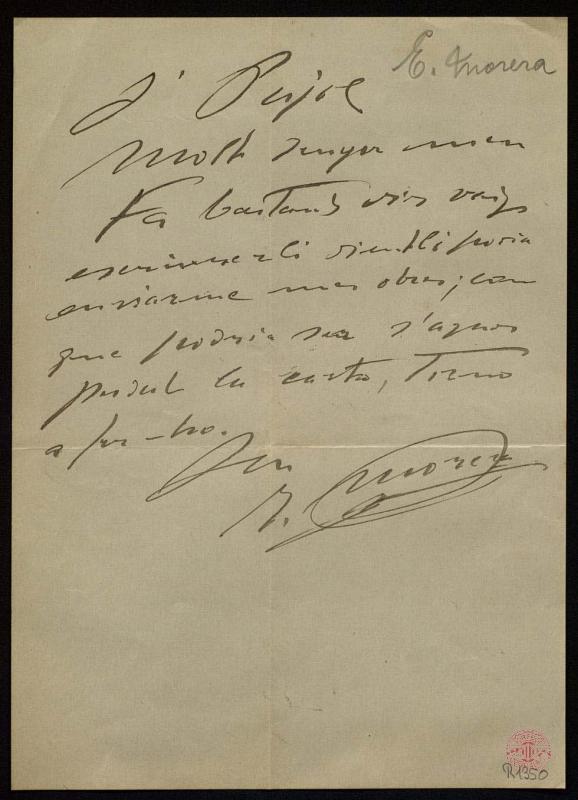 E. Morera
Sr Pujol
Molt senyor meu
Fa bastants dies vaig
escriurerli dientli si podia
enviarme mes obres; com
que podria ser s'agues
perdut la carta, torno
a fer-ho.
Seu
E. Morera
R1350